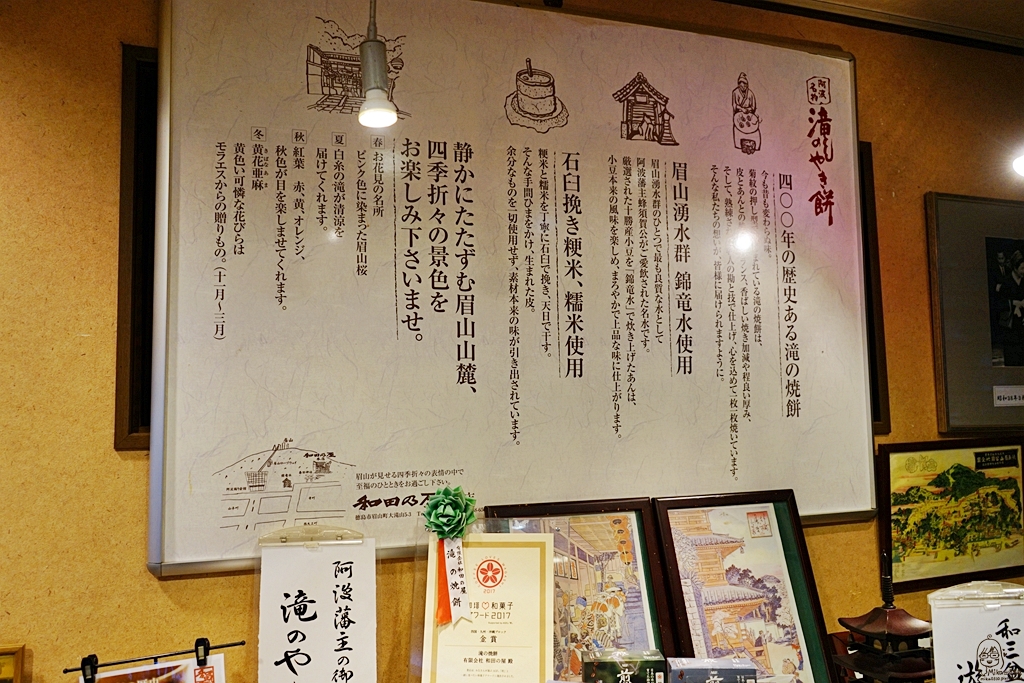 阿波名物
滝のやき餅
四〇〇年の歴史ある滝の焼餅
今も昔も変わらぬ味。
菊紋の押し型
まれている滝の焼餅は、
皮とあんとの
ランス、香ばしい焼き加減や程良い厚み、
そして、熟練さ
人の勘と技で仕上げ、心を込めて一枚一枚焼いています。
そんな私たちの想いが、皆様に届けられますように。
眉山湧水群 錦竜水使用
眉山湧水群のひとつで最も良質な水として
阿波藩主蜂須賀公がご愛飲された名水です。
厳選された十勝産小豆を「錦竜水」で炊き上げたあんは、
小豆本来の風味を楽しめ、まろやかで上品な味に仕上がります。
石臼挽き粳米、糯米使用
粳米と糯米を丁寧に石臼で挽き、天日で干す。
そんな手間ひまをかけ、生まれた皮。
余分なものを一切使用せず、素材本来の味が引き出されています。
静かにたたずむ眉山山麓、
四季折々の景色を
お楽しみ下さいませ。
春 お花見の名所
ピンク色に染まった眉山桜
夏 白糸の滝が清涼を
届けてくれます。
秋 紅葉 赤、黄、オレンジ、
秋色が目を楽しませてくれます。
冬 黄花亜麻
きばなあま
黄色い可憐な花びらは
モラエスからの贈りもの。(十二月〜三月)
眉山が見せる四季折々の表情の中で
至福のひとときをお過ごし下さい。
和田乃
徳島市眉山町大滝山5-3
和田の屋
阿波藩主の御
滝のや
有限会社 和田の屋
滝の焼餅
2017
珈琲 和菓子
アワード2017
金賞
滝の焼餅
有限会社 和田の屋 殿
和三盆
遊